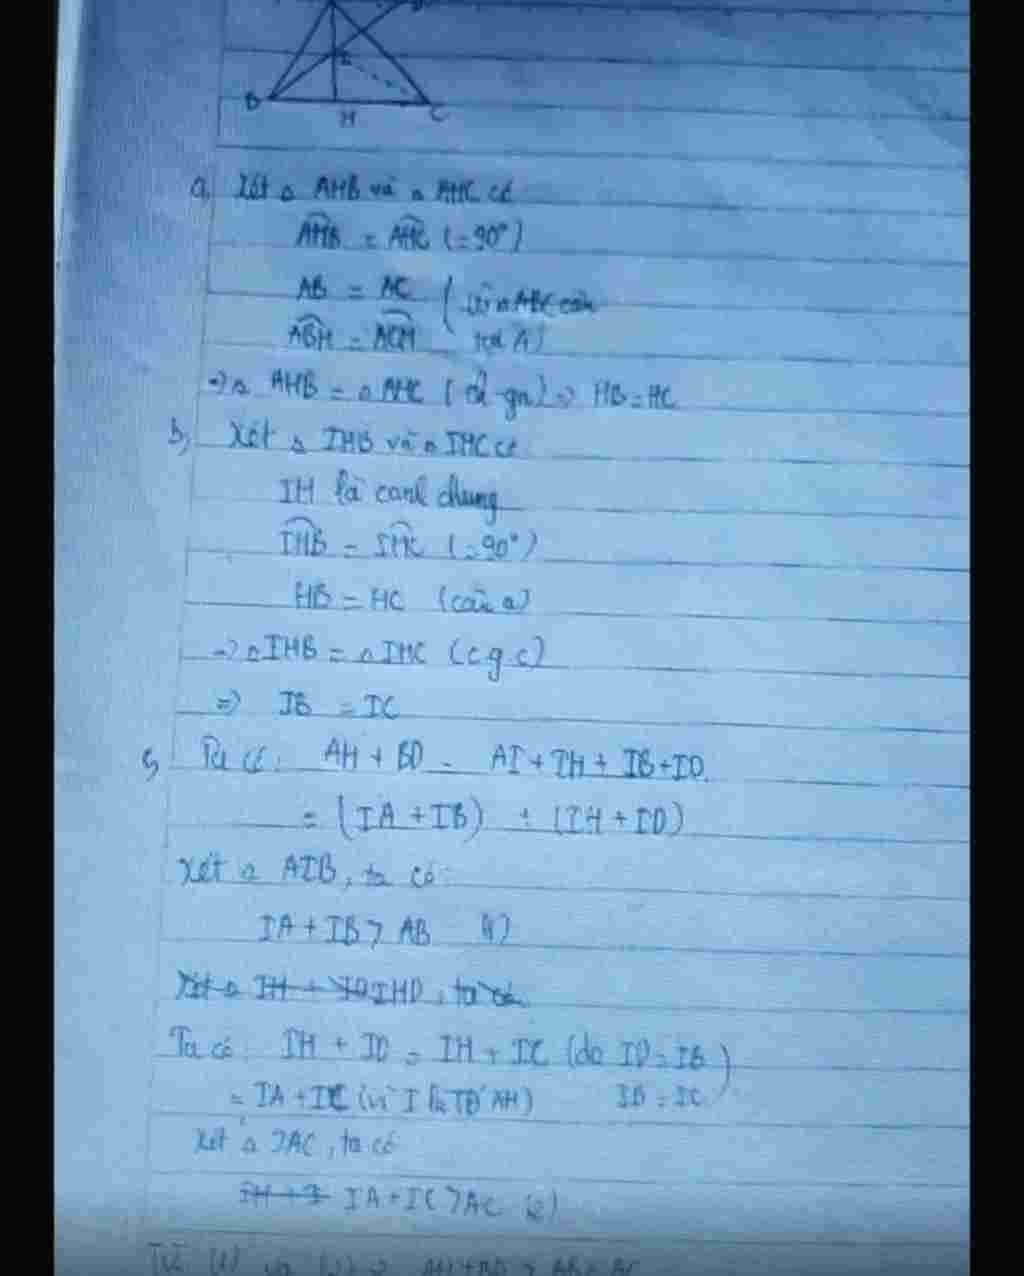 I
B
H
C
a, Xét △ AHB và △ AHC có
AHB = AHC (= 90°)
AB = AC ( vì △ ABC cân
ABH = ACH tại A)
=> △ AHB = △ AHC ( ch - gn) => HB = HC
b, Xét △ IHB và △ IHC có
IH là cạnh chung
IHB = IHC (= 90°)
HB = HC (câu a)
=> △ IHB = △ IHC (c.g.c)
=> IB = IC
c, Ta có: AH + BD = AI + IH + IB + ID
= (IA + IB) + (IH + ID)
Xét △ AIB, ta có:
IA + IB > AB (1)
Xét △ IH + ID IHD, ta có
Ta có: IH + ID = IH + IC (do ID = IB
= IA + IC (vì I là TĐ AH) IB = IC )
Xét △ IAC, ta có
IH + I IA + IC > AC (2)
Từ (1) và (2) => AH + BD > AB + AC